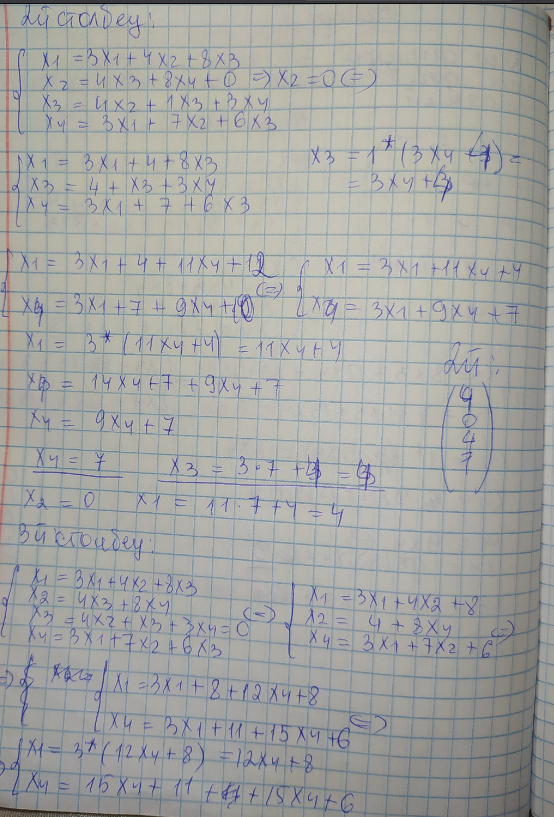 2й столбец:
x1 = 3x1 + 4x2 + 8x3
x2 = 4x3 + 8x4 + 0 => x2 = 0 <=>
x3 = 4x2 + 1x3 + 3x4
x4 = 3x1 + 7x2 + 6x3
x1 = 3x1 + 4 + 8x3
x3 = 4 + x3 + 3x4
x4 = 3x1 + 7 + 6x3
x3 = 1* (3x4 + 4) =
= 3x4 + 4
x1 = 3x1 + 4 + 11x4 + 12
x4 = 3x1 + 7 + 9x4 + 10
<=>
x1 = 3x1 + 11x4 + 4
x4 = 3x1 + 9x4 + 7
x1 = 3* (11x4 + 4) = 11x4 + 4
x4 = 14x4 + 7 + 9x4 + 7
x4 = 9x4 + 7
x4 = 7 x3 = 3·7 + 4 = 4
x2 = 0 x1 = 11·7 + 4 = 4
2й:
4
0
4
7
3й столбец:
x1 = 3x1 + 4x2 + 8x3
x2 = 4x3 + 8x4
x3 = 4x2 + x3 + 3x4 = 0
x4 = 3x1 + 7x2 + 6x3
<=>
x1 = 3x1 + 4x2 + 8
x2 = 4 + 8x4
x4 = 3x1 + 7x2 + 6
<=>
x1 = 3x1 + 8 + 12x4 + 8
x4 = 3x1 + 11 + 15x4 + 6
<=>
x1 = 3* (12x4 + 8) = 12x4 + 8
x4 = 15x4 + 11 + 15x4 + 6